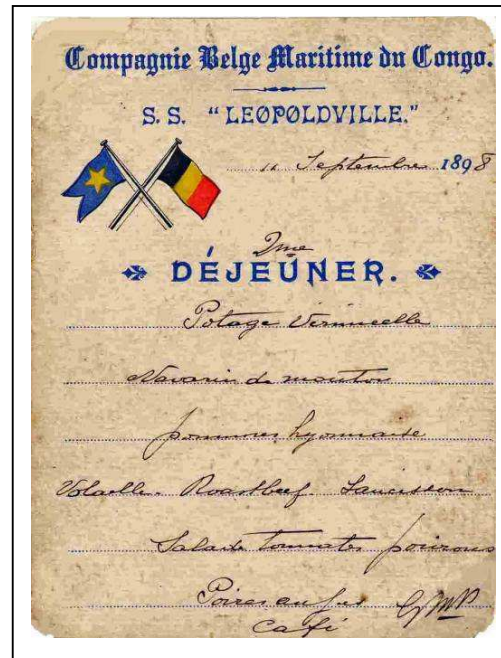 Compagnie Belge Maritime du Congo.
S. S. "LEOPOLDVILLE."
11 Septembre 1898
2me
DÉJEUNER.
Potage Vermicelle
Navarin de mouton
pommes lyonnaise
Volaille. Roastbeef. Saucisson
Salade tomates poivrons
Poires au jus
Café